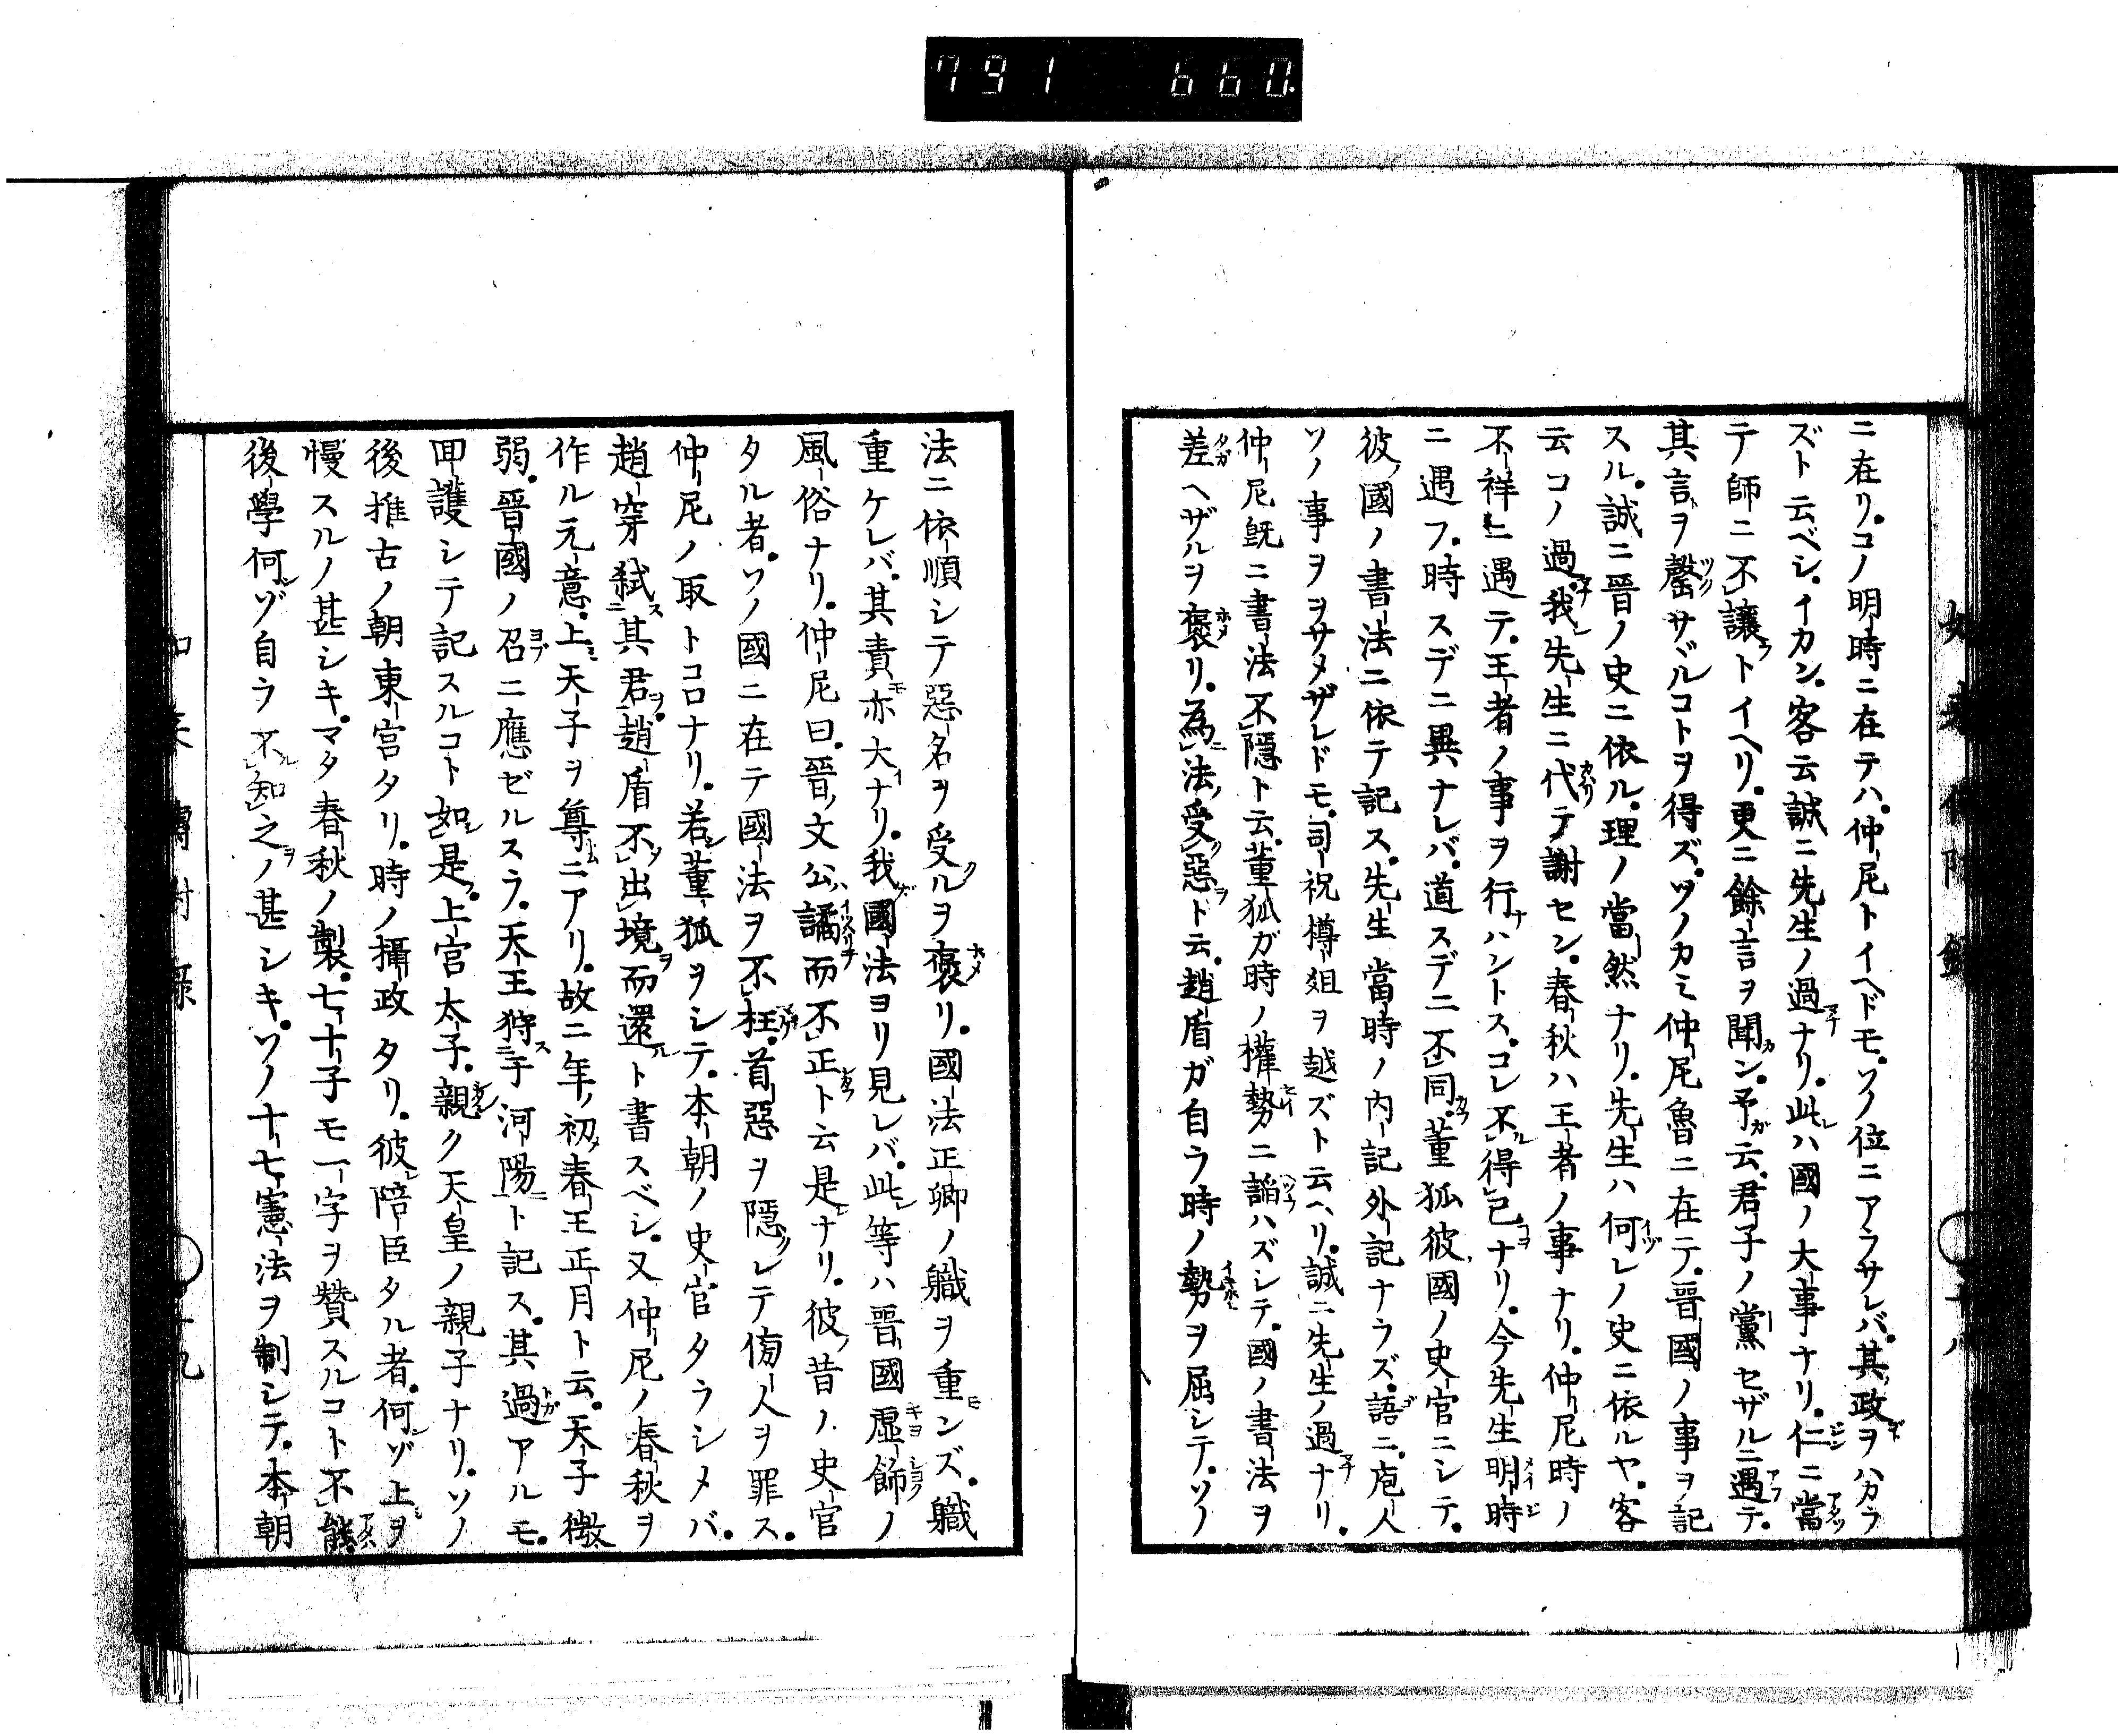 791 660
ニ在リ。コノ明時ニ在テハ。仲尼トイヘドモ。ソノ位ニアラサレバ。其政ヲハカラ
ズト云ベシ。イカン。客云誠ニ先生ノ過ナリ。此ハ國ノ大事ナリ。仁ニ當
テ師ニ不讓トイヘリ。更ニ餘言ヲ聞ン。予云。君子ノ黨セザルニ遇テ。
其言ヲ罄サヾルコトヲ得ズ。ソノカミ仲尼魯ニ在テ。晋國ノ事ヲ記
スル。誠ニ晋ノ史ニ依ル。理ノ當然ナリ。先生ハ何レノ史ニ依ルヤ。客
云コノ過。我先生ニ代テ謝セン。春秋ハ王者ノ事ナリ。仲尼時ノ
不祥ニ遇テ。王者ノ事ヲ行ハントス。コレ不得已ナリ。今先生明時
ニ遇フ。時スデニ異ナレバ。道スデニ不同。董狐彼國ノ史官ニシテ。
彼國ノ書法ニ依テ記ス。先生當時ノ内記外記ナラズ。語ニ。庖人
ソノ事ヲヲサメザレドモ。司祝樽爼ヲ越ズト云ヘリ。誠ニ先生ノ過ナリ。
仲尼既ニ書法不隱ト云。董狐ガ時ノ權勢ニ諂ハズシテ。國ノ書法ヲ
差ヘザルヲ褒リ。為法受惡ト云。趙盾ガ自ラ時ノ勢ヲ屈シテ。ソノ
法ニ依順シテ惡名ヲ受ルヲ褒リ。國法正卿ノ職ヲ重ンズ。職
重ケレバ。其責亦大ナリ。我國法ヨリ見レバ。此等ハ晋國虚飾ノ
風俗ナリ。仲尼曰。晋文公譎而不正ト云是ナリ。彼昔ノ史官
タル者。ソノ國ニ在テ國法ヲ不枉。首惡ヲ隱シテ傍人ヲ罪ス。
仲尼ノ取トコロナリ。若董狐ヲシテ。本朝ノ史官タラシメバ。
趙穿弑其君。趙盾不出境而還ト書スベシ。又仲尼ノ春秋ヲ
作ル元意。上天子ヲ尊ニアリ。故ニ年初春王正月ト云。天子微
弱。晋國ノ召ニ應ゼルスラ。天王狩于河陽ト記ス。其過アルモ。
囬護シテ記スルコト如是。上宮太子。親ク天皇ノ親子ナリ。ソノ
後推古ノ朝東宮タリ。時ノ攝政タリ。彼陪臣タル者。何ゾ上ヲ
慢スルノ甚シキ。マタ春秋ノ製。七十子モ一字ヲ贊スルコト不能。
後學何ゾ自ラ不知之ノ甚シキ。ソノ十七憲法ヲ制シテ。本朝